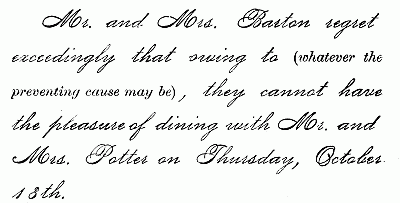 Mr. and Mrs. Barton regret
exceedingly that owing to (whatever the
preventing cause may be), they cannot have
the pleasure of dining with Mr. and
Mrs. Potter on Thursday, October
13th.